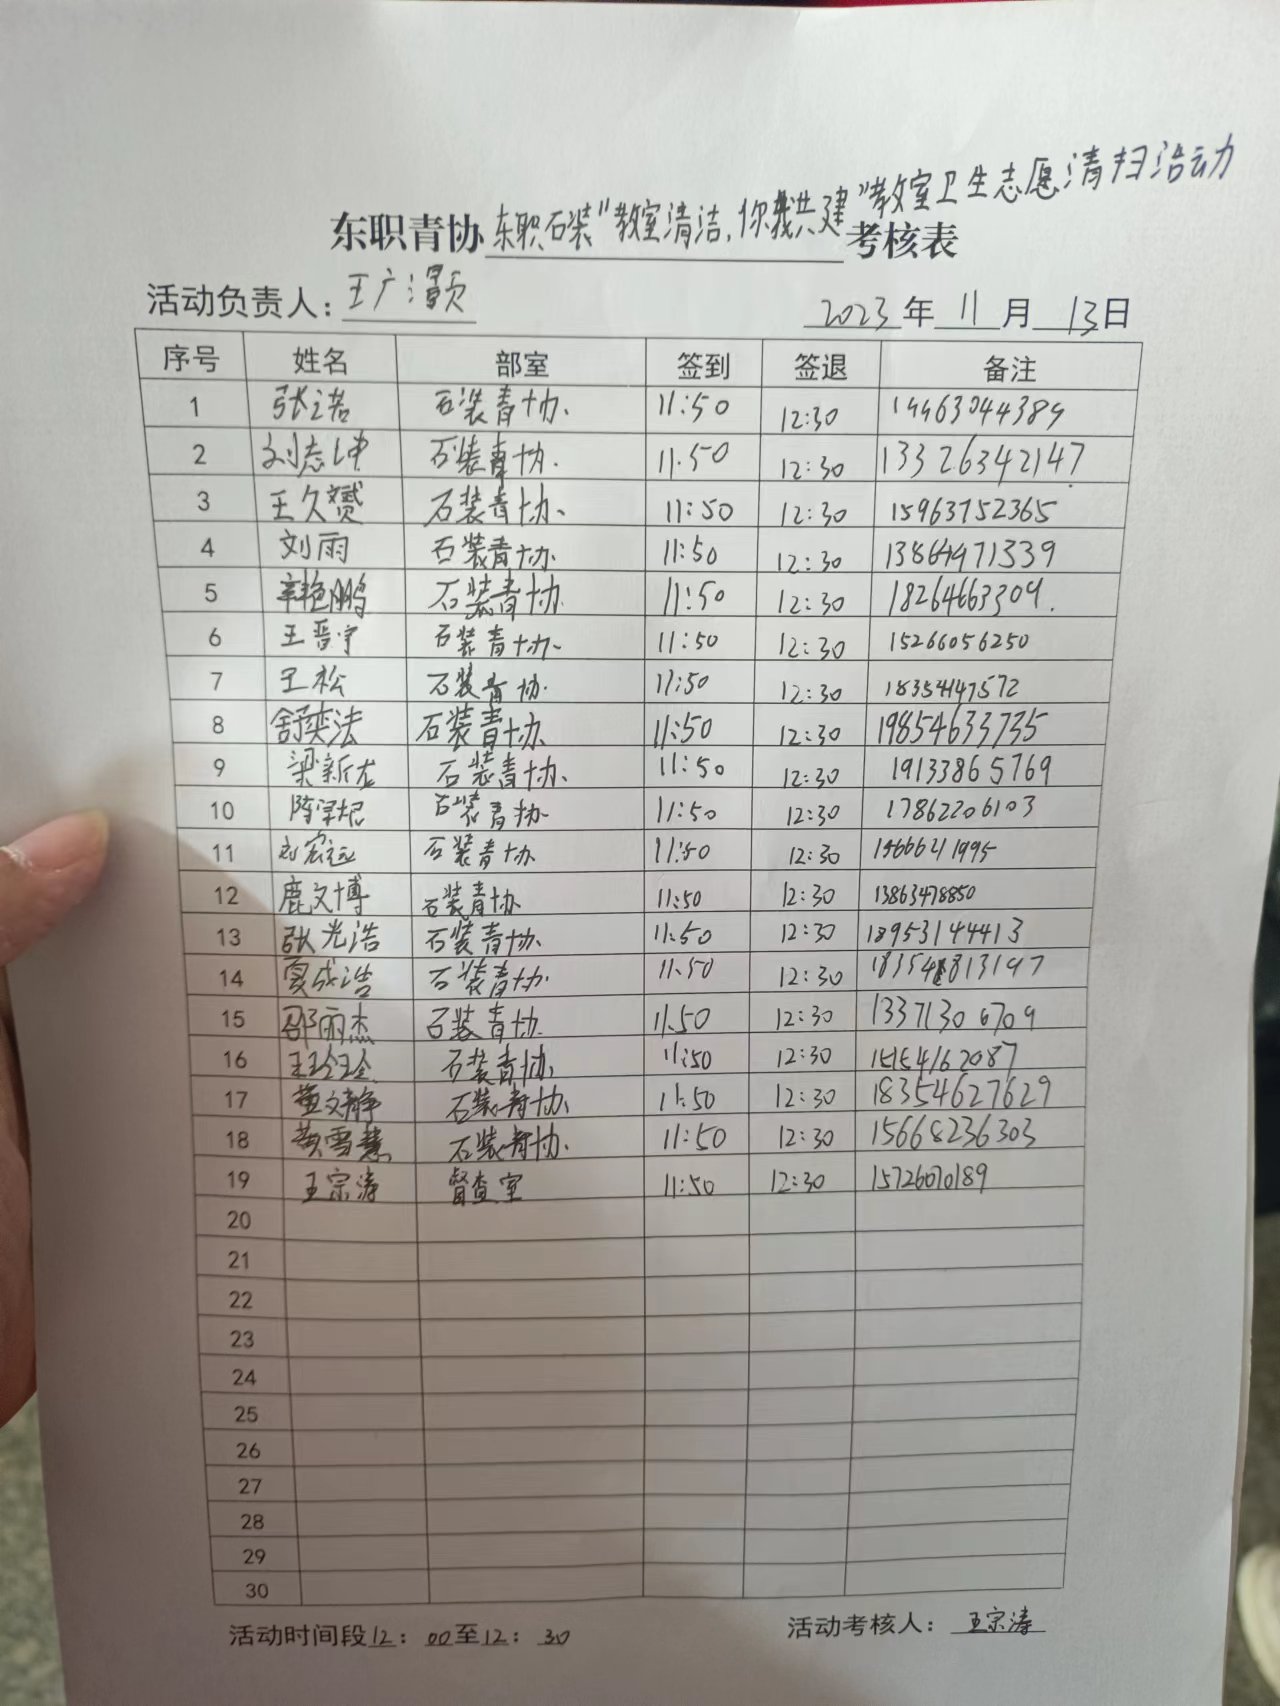 东职青协 东职石装"教室清洁,你我共建"教室卫生志愿清扫活动 考核表
活动负责人: 2023年11月13日
序号 姓名 部室 签到 签退 备注
1 张诺 石装青协 11:50 12:30
2 刘志坤 石装青协 11:50 12:30 13326342147
3 王久赟 石装青协 11:50 12:30 15963752365
4 刘雨 石装青协 11:50 12:30
5 石装青协 11:50 12:30 18264663309
6 王晋宇 石装青协 11:50 12:30 15266056250
7 王松 石装青协 11:50 12:30 18354147572
8 舒奕法 石装青协 11:50 12:30 19854633735
9 梁新龙 石装青协 11:50 12:30 19133865769
10 石装青协 11:50 12:30 17862206103
11 刘宏远 石装青协 11:50 12:30
12 鹿文博 石装青协 11:50 12:30 13863478850
13 张光浩 石装青协 11:50 12:30 18953144413
14 石装青协 11:50 12:30
15 邵丽杰 石装青协 11:50 12:30 13371306709
16 王玲玲 石装青协 11:50 12:30 15154162087
17 董文静 石装青协 11:50 12:30 18354627629
18 黄雪慧 石装青协 11:50 12:30 15668236303
19 王宗涛 督查室 11:50 12:30 15726070189
20
21
22
23
24
25
26
27
28
29
30
活动时间段12:00至12:30 活动考核人:王宗涛